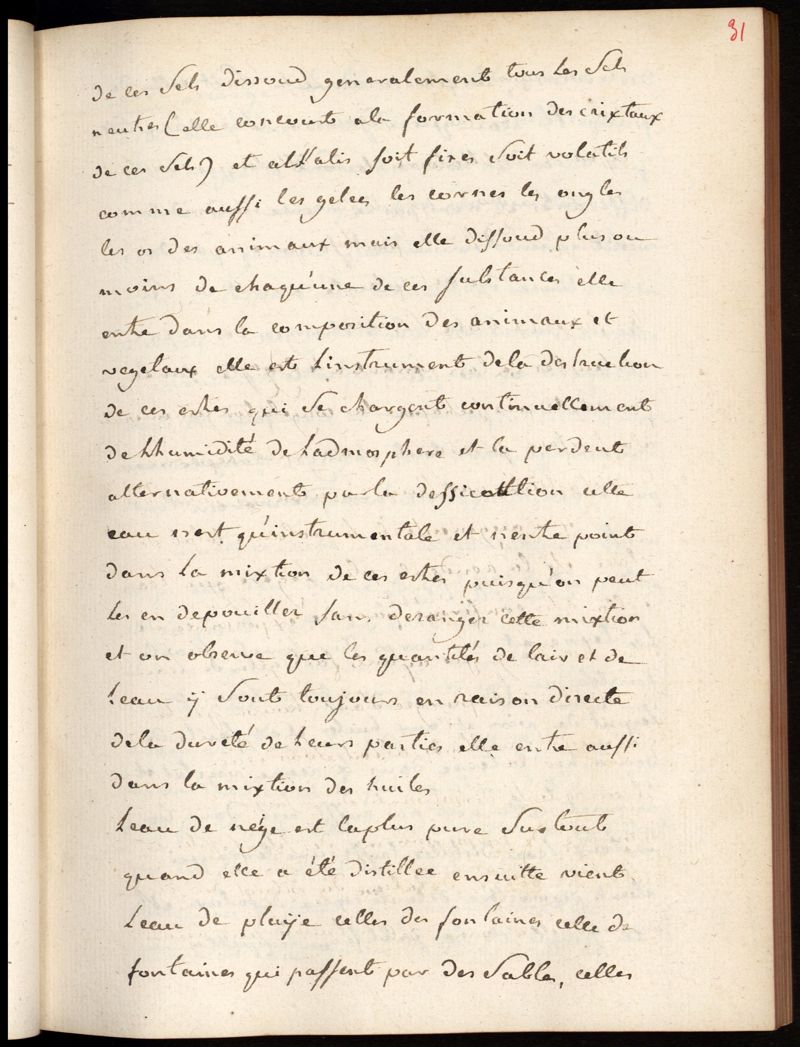 31
de ces Sels dissoud generalement tous les Sels
neutres (elle concourt a la formation des crixtaux
de ces Sels) et alkalis soit fixes Soit volatils
comme aussi les gelees les cornes les ongles
les os des animaux mais elle dissoud plus ou
moins de chaqu'une de ces substances elle
entre dans la composition des animaux et
vegetaux elle est Linstrument de la destruction
de ces estres qui Se chargent continuellement
de Lhumidité de Ladmosphere et la perdent
alternativement par la dessicattion cette
eau nest qu'instrumentale et n'entre point
dans la mixtion de ces estres puisqu'on peut
les en depouiller sans deranger cette mixtion
et on observe que les quantités de lair et de
Leau ÿ Sont toujours en raison directe
de la dureté de Leurs parties elle entre aussi
dans la mixtion des huiles
Leau de nége est la plus pure Surtout
quand elle a été distillee ensuitte vient
Leau de pluije celles des fontaines celle de
fontaines qui passent par des Sables, celles